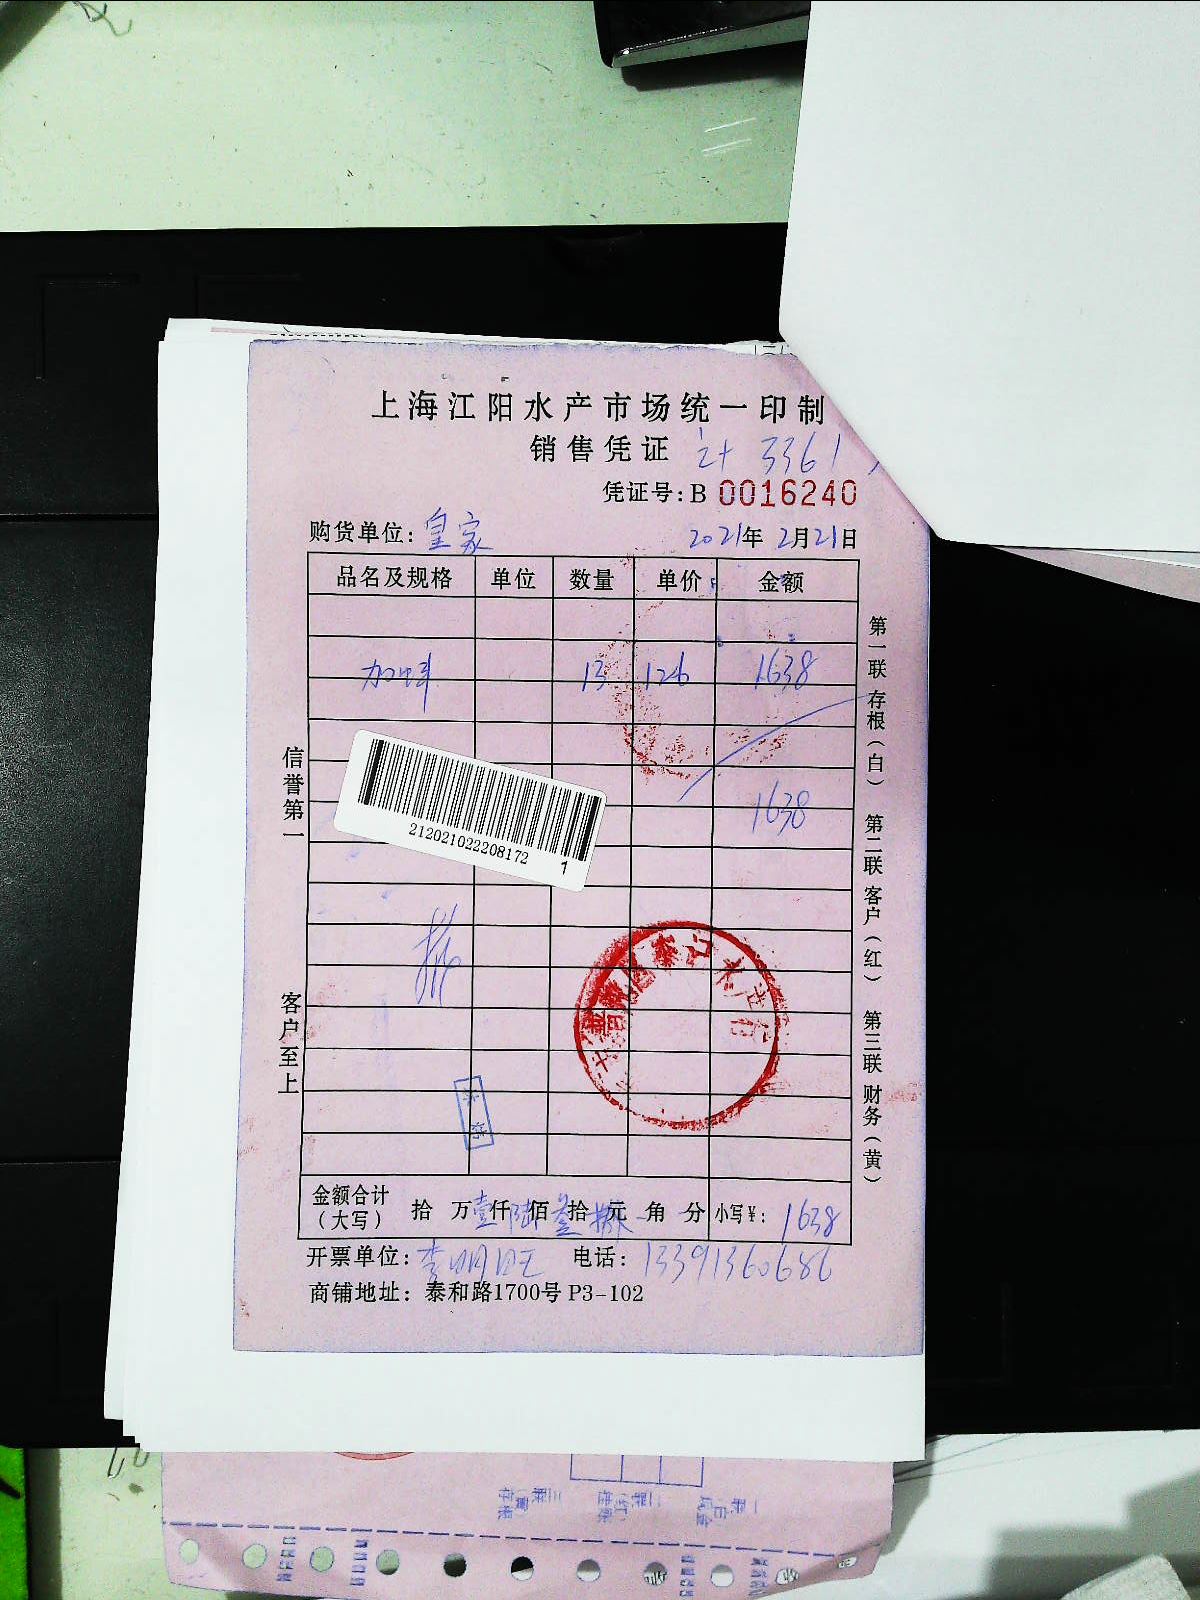 上海江阳水产市场统一印制
销售凭证 计 3361
凭证号:B 0016240
购货单位: 皇家 2021年 2月21日
品名及规格 单位 数量 单价 金额
加蚌 13 126 1638
1638
212021022208172
1
信誉第一
客户至上
第一联 存根（白） 第二联 客户（红） 第三联 财务（黄）
金额合计（大写） 拾 万 壹仟 陆佰 叁拾 捌元 角 分 小写¥: 1638
开票单位: 李明旺 电话: 13391360686
商铺地址: 泰和路1700号 P3-102